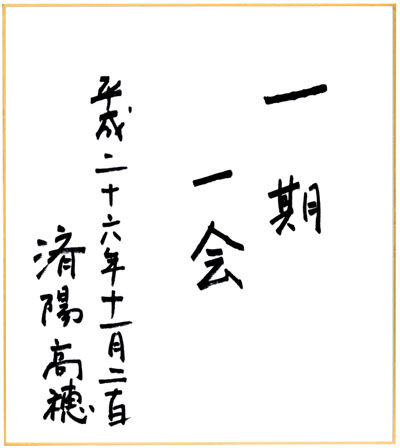 一期
一会
平成二十六年十一月二百
済陽高穂